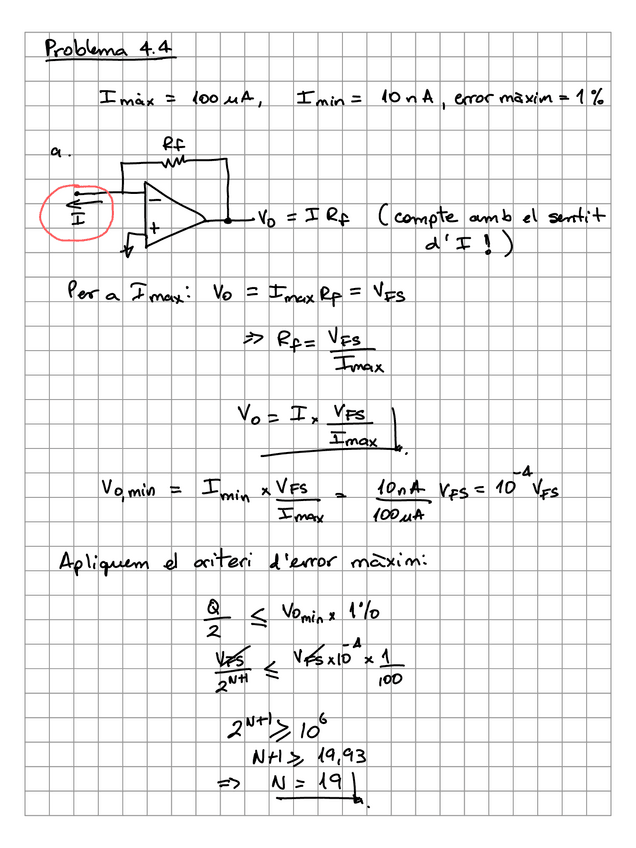 Problema 4.4
I màx = 100 μA, I min = 10 nA, error màxim = 1%
a.
Rf
I
−
+
Vo = I Rf (compte amb el sentit
d'I!)
Per a Imax: Vo = Imax Rf = VFS
⇒ Rf = VFS / Imax
Vo = I × VFS / Imax
Vo,min = Imin × VFS / Imax = 10nA / 100μA VFS = 10^-4 VFS
Apliquem el criteri d'error màxim:
Q / 2 ≤ Vo min × 1%
VFS / 2^N+1 ≤ VFS × 10^-4 × 1 / 100
2^N+1 ≥ 10^6
N+1 ≥ 19,93
⇒ N = 19